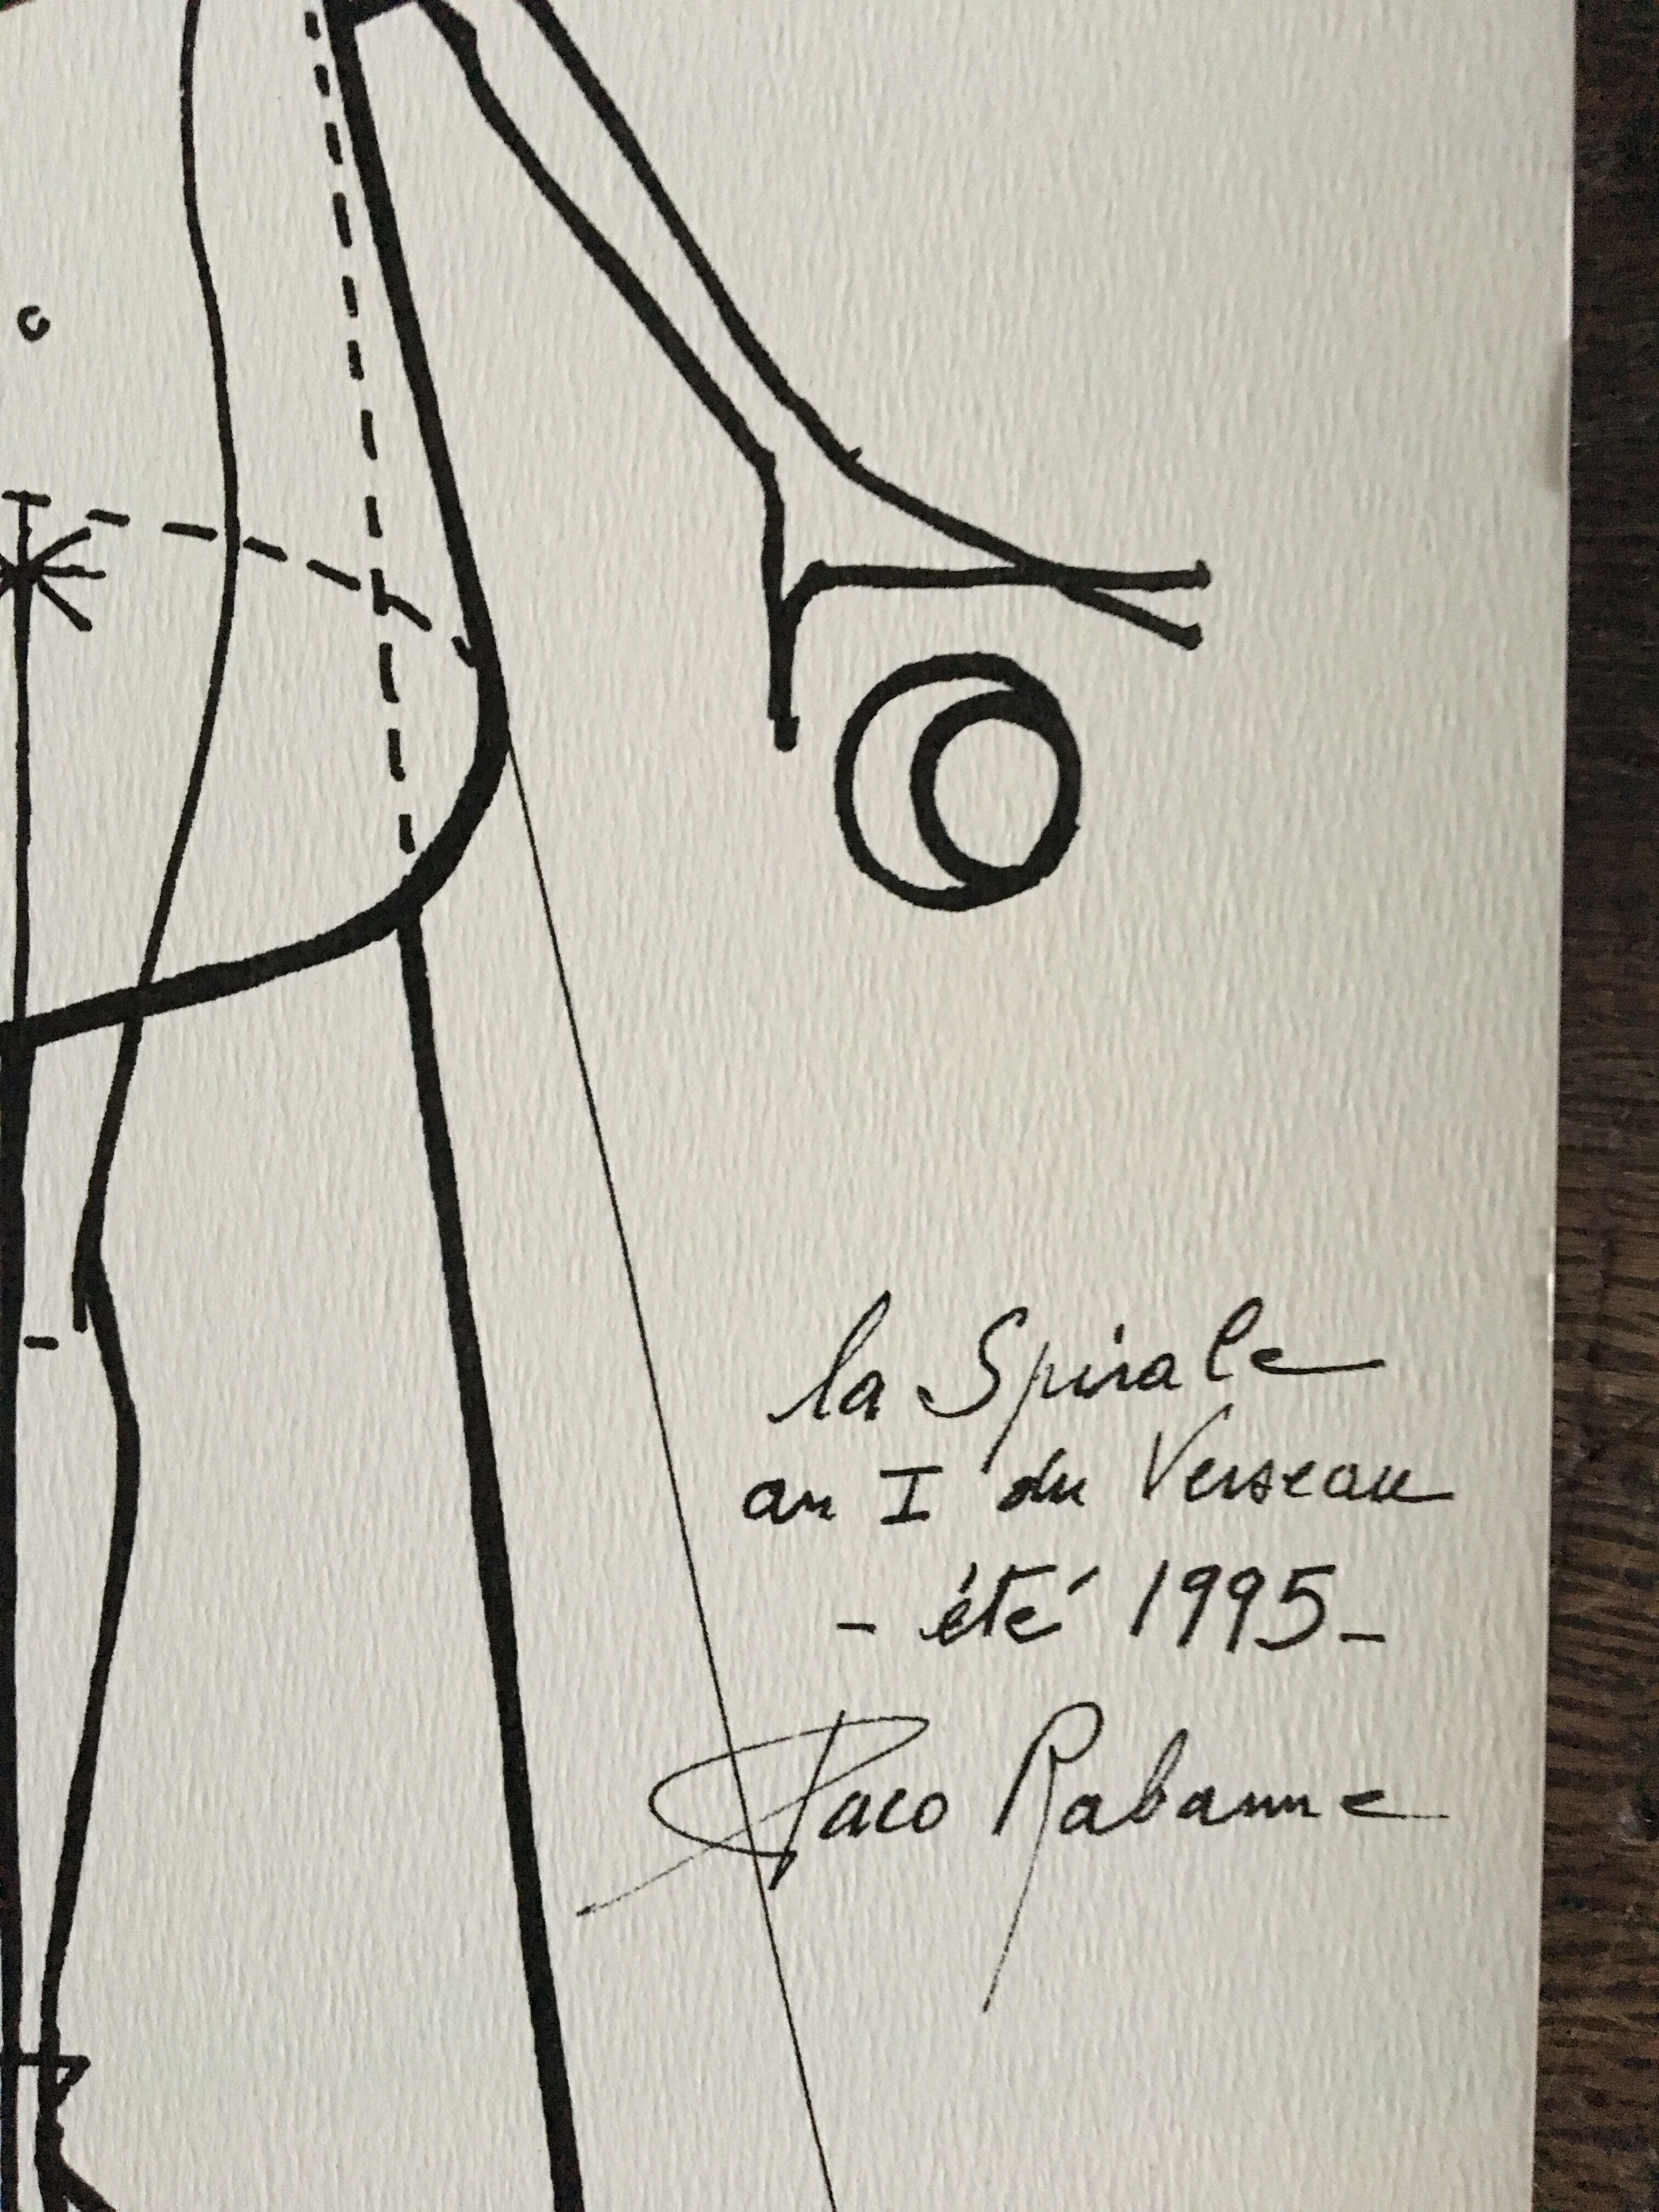 la Spirale
an I du Verseau
- été 1995 -
Paco Rabanne